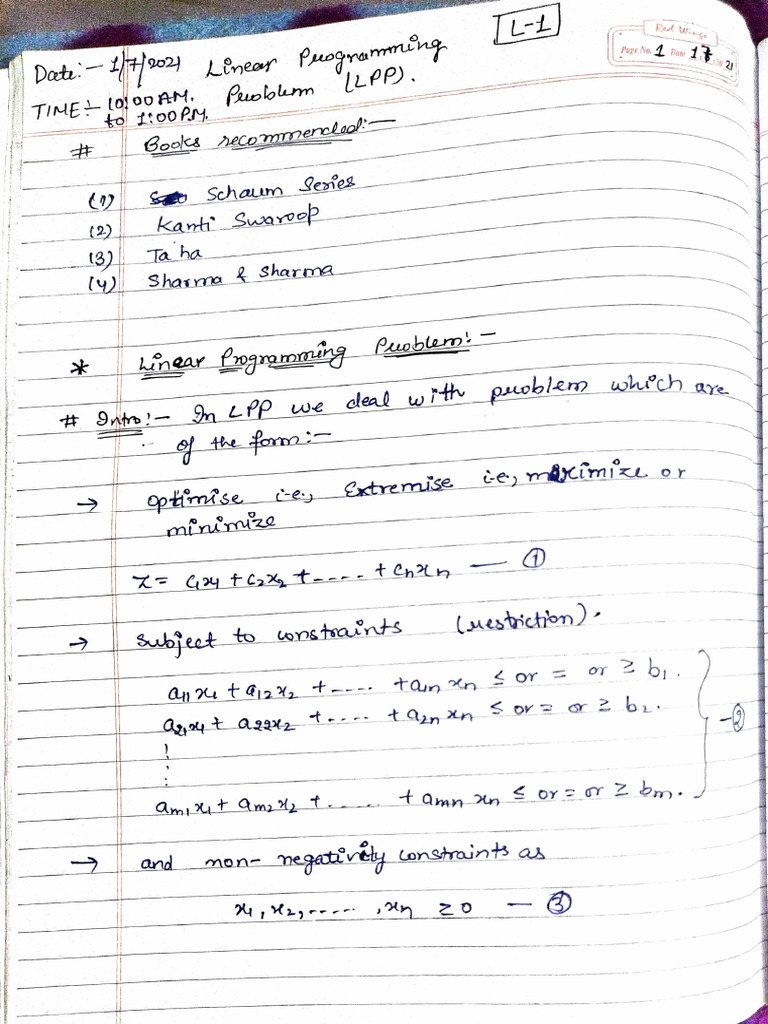 L-1
Red Wings
Page No. 1 Date 1 7 2021
Date:- 1/7/2021 Linear Programming
TIME:- 10:00 AM. Problem (LPP).
to 1:00 P.M.
# Books recommended:-
(1) Schaum Series
(2) Kanti Swaroop
(3) Taha
(4) Sharma & Sharma
* Linear Programming Problem:-
# Intro:- In LPP we deal with problem which are
of the form:-
→ optimise i.e., Extremise i.e., maximize or
minimize
z = c₁x₁ + c₂x₂ + ..... + cₙxₙ — ①
→ subject to constraints (restriction).
a₁₁x₁ + a₁₂x₂ + ..... + a₁ₙxₙ ≤ or = or ≥ b₁.
a₂₁x₁ + a₂₂x₂ + ..... + a₂ₙxₙ ≤ or = or ≥ b₂. — ②
⋮
aₘ₁x₁ + aₘ₂x₂ + ...... + aₘₙxₙ ≤ or = or ≥ bₘ.
→ and non-negativity constraints as
x₁, x₂, ....., xₙ ≥ 0 — ③